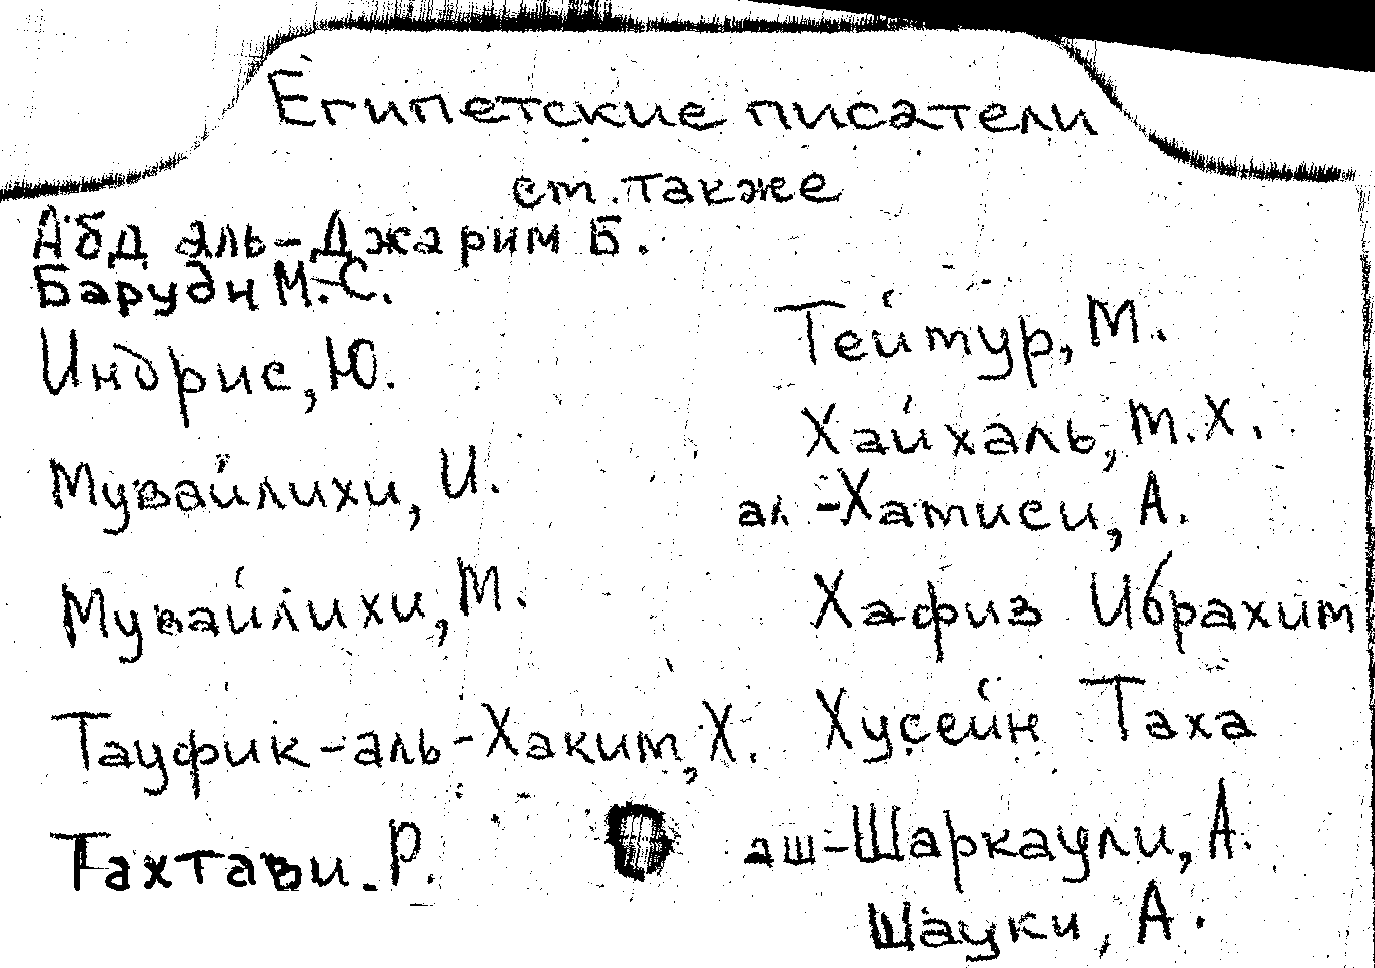 Египетские писатели
см. также
Абд аль-Джарим Б.
Баруди М.-С.
Индрис, Ю.
Мувайлихи, И.
Мувайлихи, М.
Тауфик-аль-Хаким, Х.
Тахтави. Р.
Теймур, М.
Хайхаль, М.Х.
ал-Хамиси, А.
Хафиз Ибрахим
Хусейн Таха
аш-Шаркаули, А.
Шауки, А.